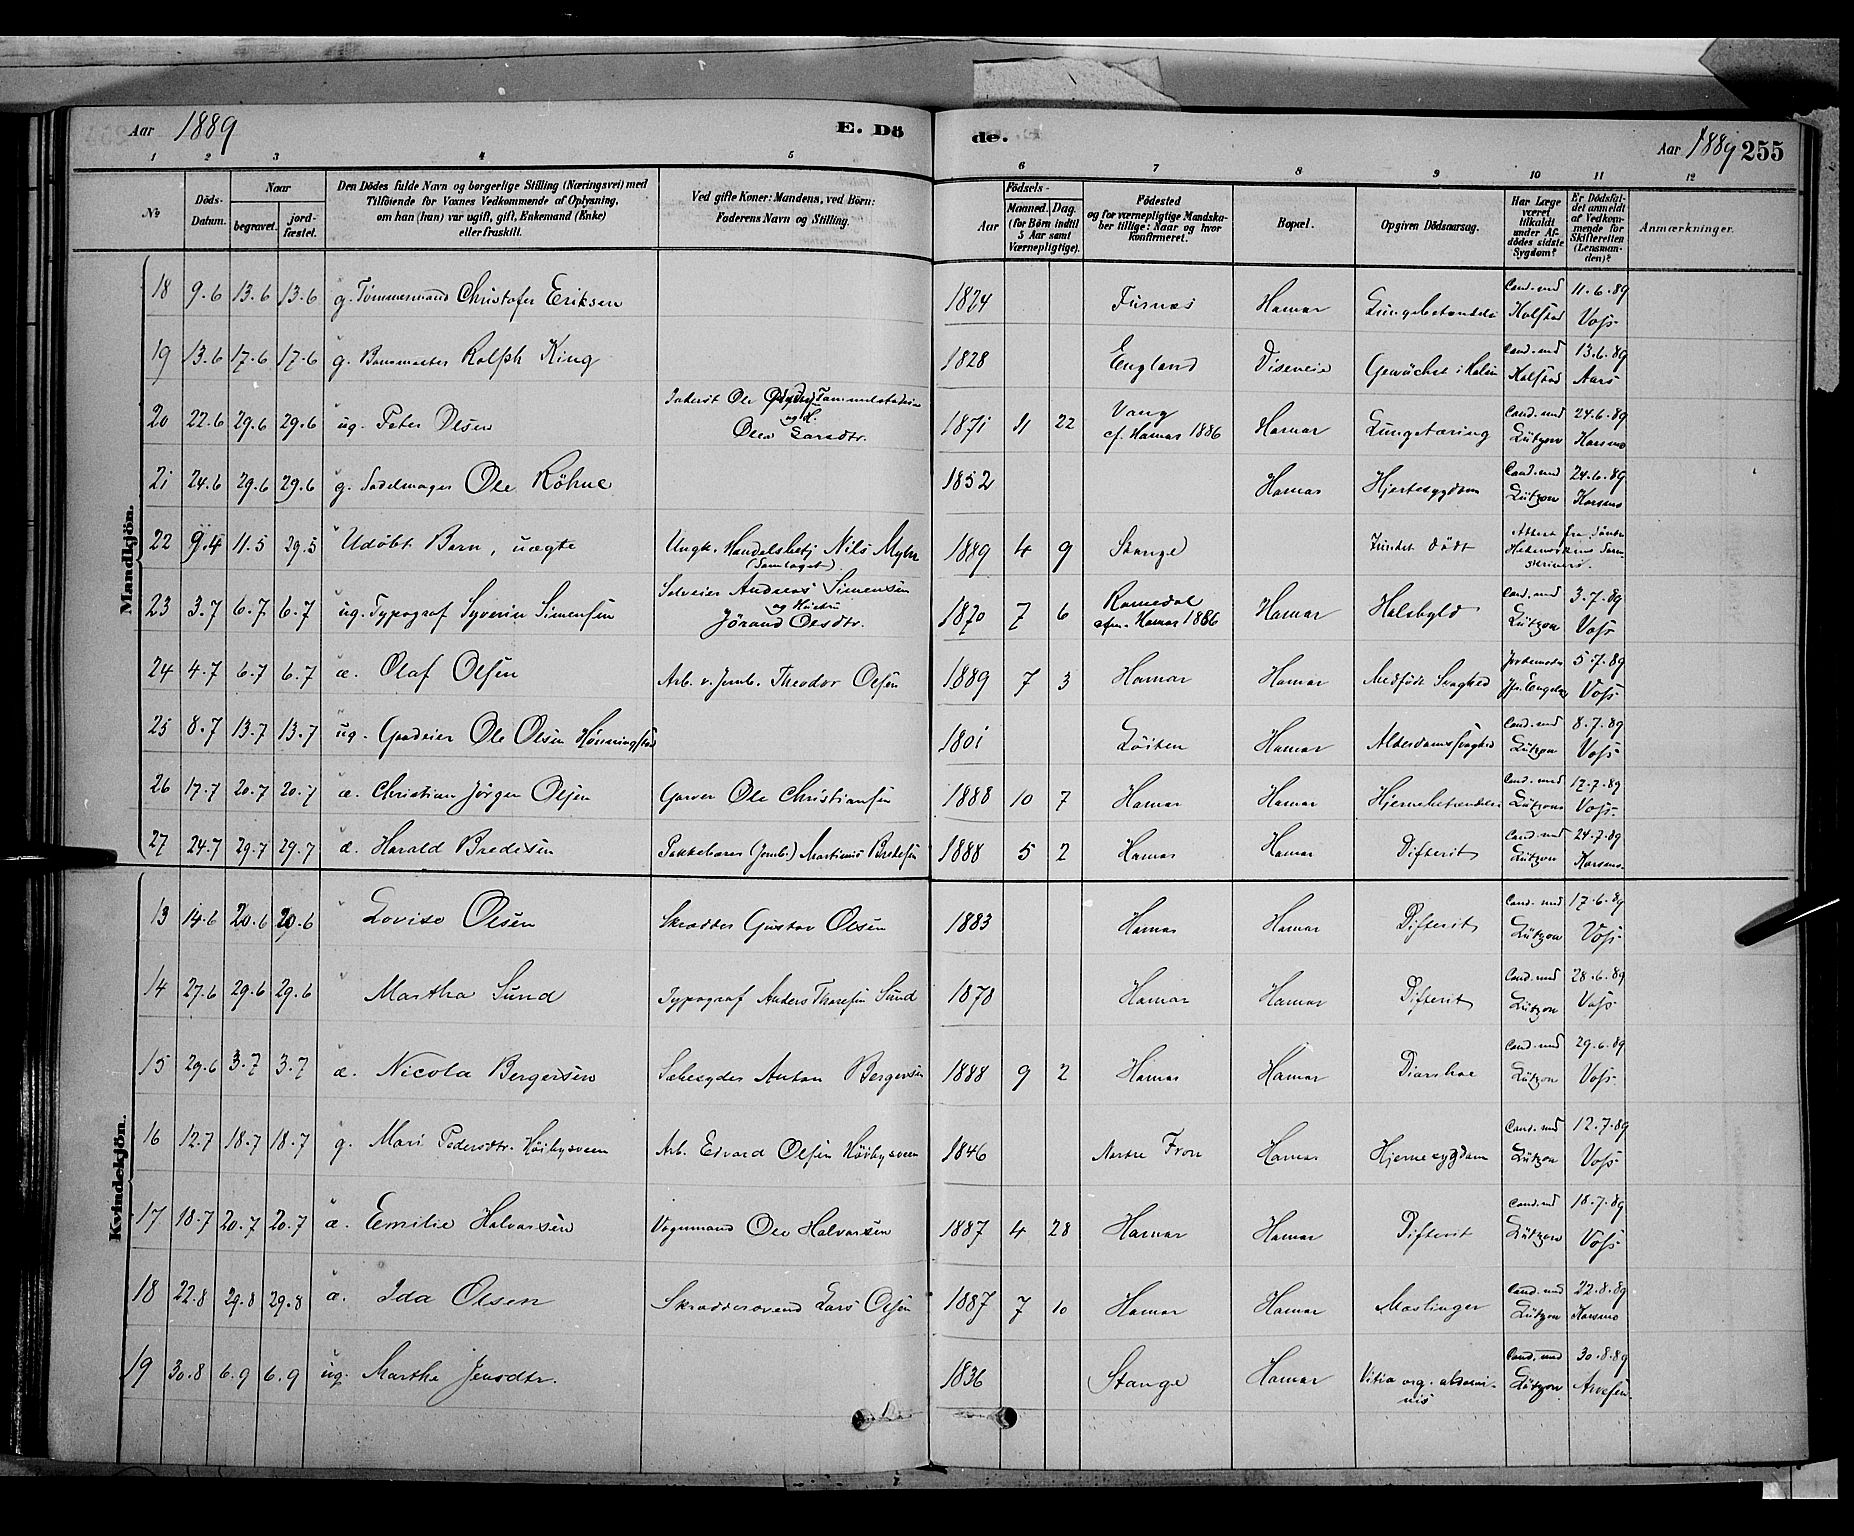 Aar 1889
E. Dö
de.
Aar 1889 255
1 2 3 4 5 6 7 8 9 10 11 12
No
Döds-Datum.
Naar
begravet.
jord-fæstet.
Den Dödes fulde Navn og borgerlige Stilling (Næringsvei) med
Tilföiende for Voxnes Vedkommende af Oplysning,
om han (hun) var ugift, gift, Enkemand (Enke)
eller fraskilt.
Ved gifte Koner: Mandens, ved Börn:
Faderens Navn og Stilling.
Födsels-
Aar
Maaned. Dag.
(for Börn indtil
5 Aar samt
Værnepligtige).
Födested
og for værnepligtige Mandska-
ber tillige: Naar og hvor
konfirmeret.
Bopæl.
Opgiven Dödsaarsag.
Har Læge
været
tilkaldt
under Af-
dödes sidste
Sygdom?
Er Dödsfal-
det anmeldt
af Vedkom-
mende for
Skifteretten
(Lensman-
den)?
Anmærkninger.
Mandkjön.
18 9.6 13.6 13.6 g. Tømmermand Christofer Eriksen 1824 Furnæs Hamar Lungebetændelse Cand. med Kolstad 11.6.89 Voss
19 13.6 17.6 17.6 g. Banemester Ralph King 1828 England Disenveie Gevächst i Halsen Cand. med Kolstad 13.6.89 Aars
20 22.6 29.6 29.6 ug. Peter Olsen Inderst Ole og H. Olea Larsdtr. 1871 11 22 Vang cf. Hamar 1886 Hamar Lungetæring Cand. med Lützow 24.6.89 Karsmo
21 24.6 29.6 29.6 g. Sadelmager Ole Röhne 1852 Hamar Hjertesygdom Cand. med Lützow 24.6.89 Karsmo
22 9.4 11.5 29.5 Udøbt Barn, uægte Ungk. Handelsbetj Nils Myhr 1889 4 9 Stange Fundet dødt Attest fra Søndre Hedemarkens Sorenskriveri.
23 3.7 6.7 6.7 ug. Typograf Syverin Simensen Selveier Andreas Simensen og Hustru Jørand Olsdtr. 1870 7 6 Romedal cfm. Hamar 1886 Hamar Halsbyld Cand. med Lützow 3.7.89 Voss
24 4.7 6.7 6.7 æ. Olaf Olsen Arb. v. Jernb. Theodor Olsen 1889 7 3 Hamar Hamar Medfødt Svaghed Jordemoder 5.7.89 Voss
25 8.7 13.7 13.7 ug. Gaardeier Ole Olsen Hønningstad 1801 Løiten Hamar Alderdomssvaghed Cand. med Lützow 8.7.89 Voss
26 17.7 20.7 20.7 æ. Christian Jørgen Olsen Garver Ole Christiansen 1888 10 7 Hamar Hamar Hjernebetændelse Cand. med Lützow 17.7.89 Voss
27 24.7 29.7 29.7 æ. Harald Bredesen Pakkebærer (Jernb.) Martinus Bredesen 1888 5 2 Hamar Hamar Difterit Cand. med Lützow 24.7.89 Karsmo
Kvindekjön.
13 14.6 20.6 20.6 Lovise Olsen Skrædder Gustav Olsen 1883 Hamar Hamar Difterit Cand. med Lützow 17.6.89 Voss
14 27.6 29.6 29.6 Martha Sund Typograf Anders Thoresen Sund 1878 Hamar Hamar Difterit Cand. med Lützow 28.6.89 Voss
15 29.6 3.7 3.7 æ. Nicola Bergersen Sæbesyder Anton Bergersen 1888 9 2 Hamar Hamar Diarrhoe Cand. med Lützow 29.6.89 Voss
16 12.7 18.7 18.7 g. Mari Pedersdtr. Høibysveen Arb. Edvard Olsen Høibysveen 1846 Nordre Fron Hamar Hjernesygdom Cand. med Lützow 12.7.89 Voss
17 18.7 20.7 20.7 æ. Emilie Halvorsen Vognmand Ole Halvorsen 1887 4 28 Hamar Hamar Difterit Cand. med Lützow 18.7.89 Voss
18 22.8 29.8 29.8 æ. Ida Olsen Skræddersvend Lars Olsen 1887 7 10 Hamar Hamar Mæslinger Cand. med Lützow 22.8.89 Karsmo
19 30.8 6.9 6.9 ug. Marthe Jensdtr. 1836 Stange Hamar Vitia org. abdominis Cand. med Lützow 30.8.89 Arnesen